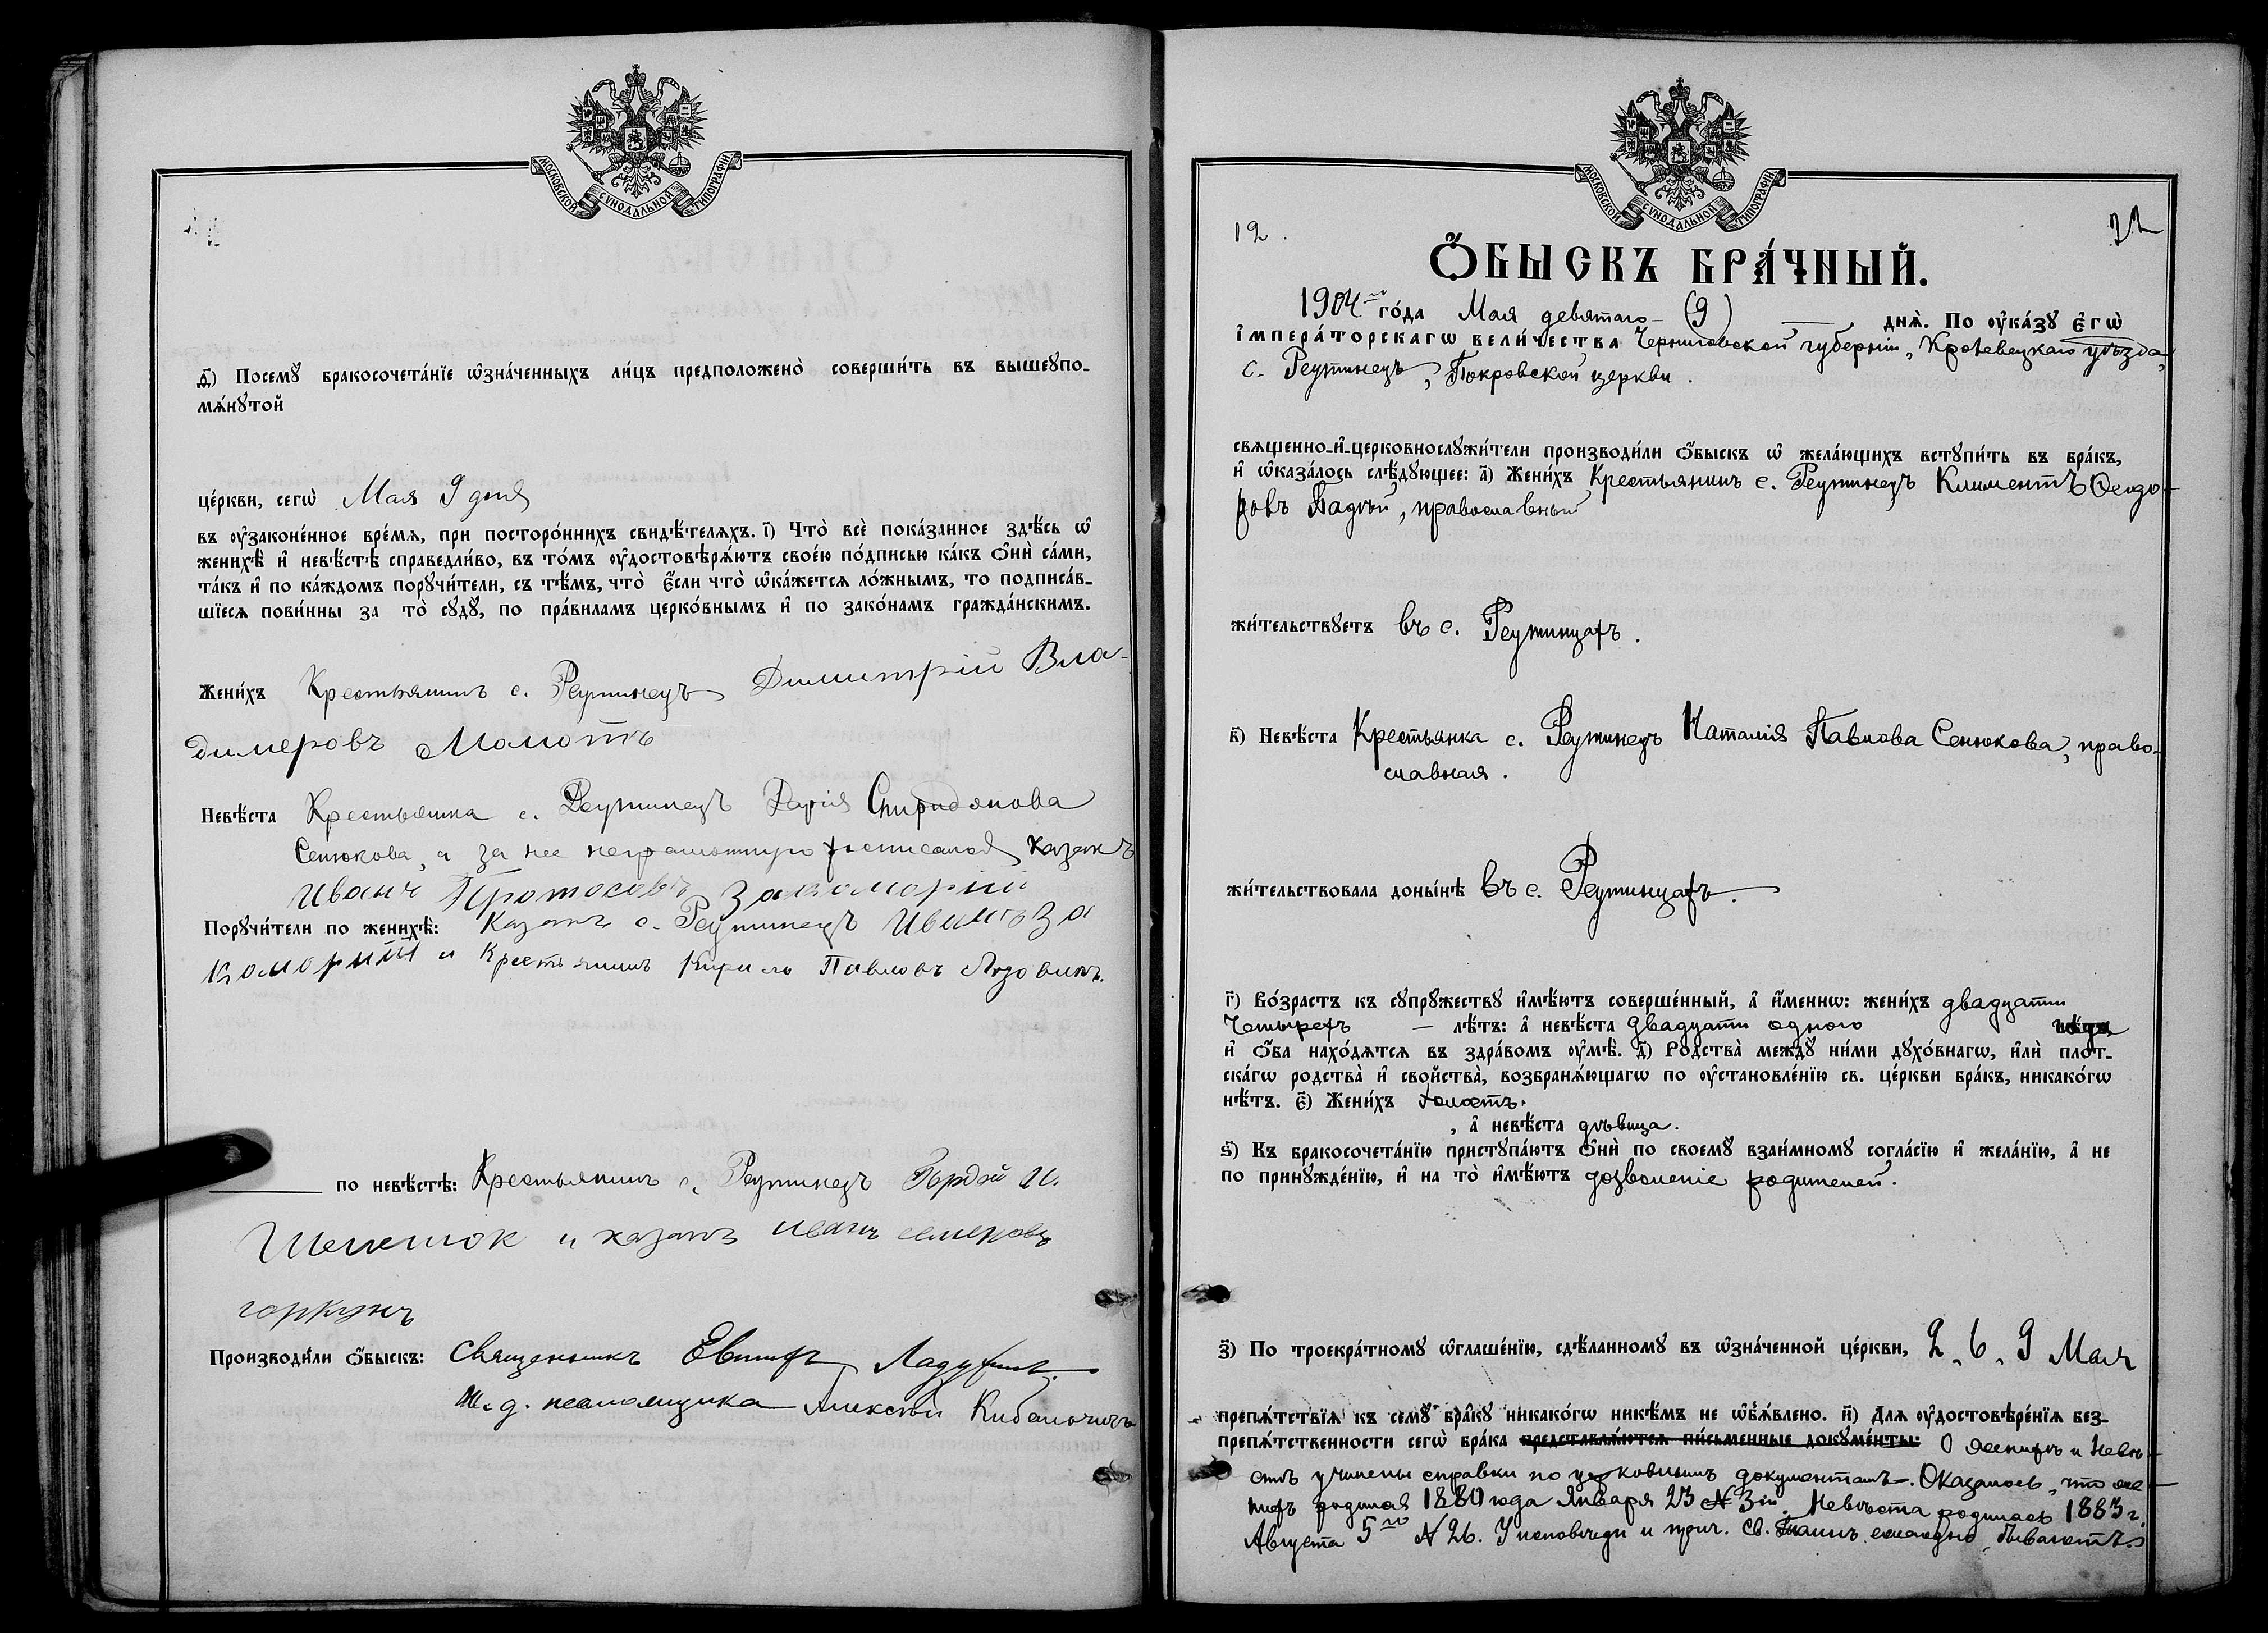 МОСКОВСКОЙ СѴНОДАЛЬНОЙ ТИПОГРАФІИ
д҃і) Посемꙋ̀ бракосочета́нїе ѡ҆зна́ченныхъ ли́цъ предположено̀ соверши́ть въ вышеꙋпо-
мѧ́нꙋтой
це́ркви, сегѡ̀ Мая 9 дня
въ ᲂу҆зако́ненное вре́мѧ, при посторо́ннихъ свидѣ́телѧхъ. і҃) Что̀ всѐ пока́занное здѣ́сь ѡ҆
женихѣ̀ и҆ невѣ́стѣ справедли́во, въ то́мъ ᲂу҆достовѣрѧ́ютъ свое́ю по́дписью ка́къ ѻ҆нѝ са́ми,
та́къ и҆ по ка́ждомъ порꙋчи́тели, съ тѣ́мъ, что̀ є҆́сли что̀ ѡ҆ка́жетсѧ ло́жнымъ, то подписа́в-
шїесѧ пови́нны за то̀ сꙋдꙋ̀, по пра́виламъ церко́внымъ и҆ по зако́намъ гражда́нскимъ.
Жени́хъ Крестьянинъ с. Реутинецъ Димитрій Вла-
димеровъ Молотъ
Невѣ́ста Крестьянка с. Реутинецъ Дарія Спиридонова
Сенюкова, а за нее неграмотную росписался казакъ
Иванъ Протосовъ Закоморній
Порꙋчи́тели по женихѣ̀: Казакъ с. Реутинецъ Иванъ За
коморній и Крестьянинъ Кирилъ Павловъ
по невѣ́стѣ: Крестьянинъ с. Реутинецъ Гордѣй И.
Шелешок и казакъ Иванъ семеровъ
горкунъ
Производи́ли ѻ҆́быскъ: Священникъ Евтихъ
И. д. псаломщика Алексѣй Кибальчичъ
МОСКОВСКОЙ СѴНОДАЛЬНОЙ ТИПОГРАФІИ
12. 22
Ѻ҆́БЫСКЪ БРА́ЧНЫЙ.
1904го го́да Мая девятаго (9) днѧ̀. По ᲂу҆ка́зꙋ є҆гѡ̀
і҆мпера́торскагѡ вели́чества Черниговской губерніи, Кролевецкаго уѣзда,
с. Реутинецъ, Покровской церкви.
свѧщенно-и҆-церковнослꙋжи́тели производи́ли ѻ҆́быскъ ѡ҆ жела́ющихъ встꙋпи́ть въ бра́къ,
и҆ ѡ҆каза́лось слѣ́дꙋющее: а҃) Жени́хъ Крестьянинъ с. Реутинецъ Климентъ Ѳеодо-
ровъ Гладкій, православный
жи́тельствꙋетъ въ с. Реутинцахъ.
в҃) Невѣ́ста Крестьянка с. Реутинецъ Наталія Павлова Сенюкова, право-
славная.
жи́тельствовала доны́нѣ въ с. Реутинцахъ.
г҃) Во́зрастъ къ сꙋпрꙋ́жествꙋ и҆мѣ́ютъ соверше́нный, а҆ и҆́меннѡ: жени́хъ двадцати
четырехъ — лѣ́тъ: а҆ невѣ́ста двадцати одного года
и҆ ѻ҆́ба нахо́дѧтсѧ въ здра́вомъ ᲂу҆мѣ̀. д҃) Родства̀ междꙋ̀ ни́ми дꙋхо́внагѡ, и҆лѝ плот-
ска́гѡ родства̀ и҆ сво́йства, возбранѧ́ющагѡ по ᲂу҆становле́нїю св. це́ркви бра́къ, никако́гѡ
нѣ́тъ. є҃) Жени́хъ холостъ.
, а҆ невѣ́ста дѣвица.
ѕ҃) Къ бракосочета́нїю пристꙋпа́ютъ ѻ҆нѝ по своемꙋ̀ взаи́мномꙋ согла́сїю и҆ жела́нїю, а҆ не
по принꙋжде́нїю, и҆ на то̀ и҆мѣ́ютъ дозволеніе родителей.
з҃) По троекра́тномꙋ ѡ҆глаше́нїю, сдѣ́ланномꙋ въ ѡ҆зна́ченной це́ркви, 2, 6, 9 Мая
препѧ́тствїѧ къ семꙋ̀ бра́кꙋ никако́гѡ никѣ́мъ не ѡ҆б̾ѧ́влено. и҃) Длѧ ᲂу҆достовѣре́нїѧ без-
препѧ́тственности сегѡ̀ бра́ка представлѧ́ютсѧ пи́сьменные докꙋме́нты: О женихѣ и невѣ-
стѣ учинены справки по церковнымъ документамъ. Оказалось, что же-
нихъ родился 1880 года Января 23 № 3й. Невѣста родилась 1883 г.
Августа 5го № 26. У исповѣди и прич. Св. Таинъ ежегодно бываютъ.